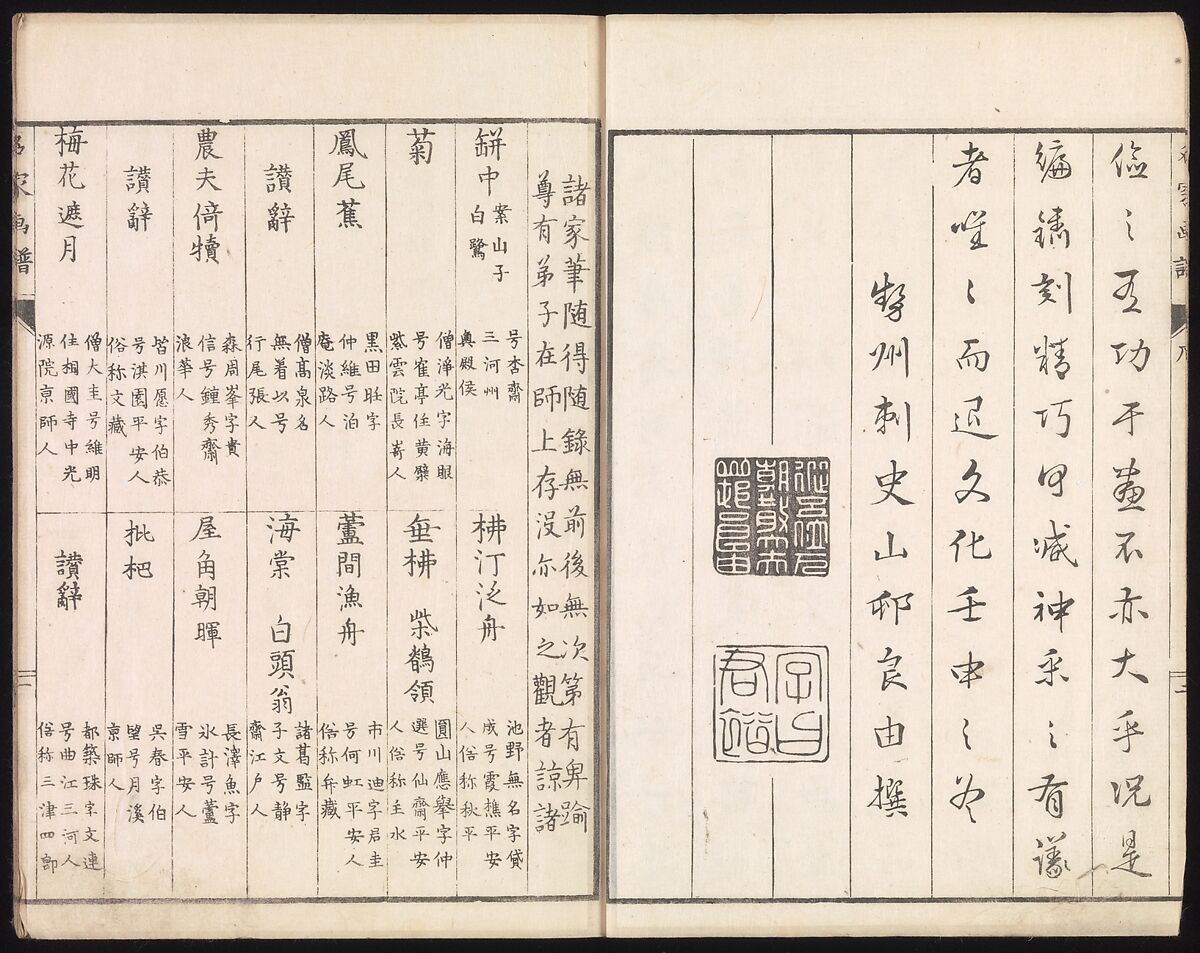 儉之有功于畫不亦大乎況是
編鐫刻精巧何減神采之有議
者唯々而退文化壬申之冬
野州刺史山邨良由撰
字曰
君裕
諸家筆随得随錄無前後無次第有卑踰
尊有弟子在師上存没亦如之觀者諒諸
缾中 案山子
白鷺
号杏齋
三河州
奥殿侯
柫汀泛舟
池野無名字貸
成号霞樵平安
人俗称秋平
菊
僧淨光字海眼
号雀亭住黄檗
紫雲院長嵜人
垂柫 柴鶺領
圓山應舉字仲
選号仙齋平安
人俗称主水
鳳尾蕉
黒田旺字
仲維号泊
庵淡路人
蘆間漁舟
市川迪字君圭
号何虹平安人
俗称弁藏
讃辭
僧髙泉名
無着以号
行尾張人
海棠 白頭翁
諸葛監字
子文号静
齋江户人
農夫倚犢
森周峯字貴
信号鐘秀齋
浪華人
屋角朝暉
長澤魚字
氷計号蘆
雪平安人
讃辭
皆川愿字伯恭
号淇園平安人
俗称文藏
批杷
呉春字伯
望号月溪
京師人
梅花遮月
僧大圭号維明
住相國寺中光
源院京師人
讃辭
都築珠字文連
号曲江三河人
俗称三津四郎